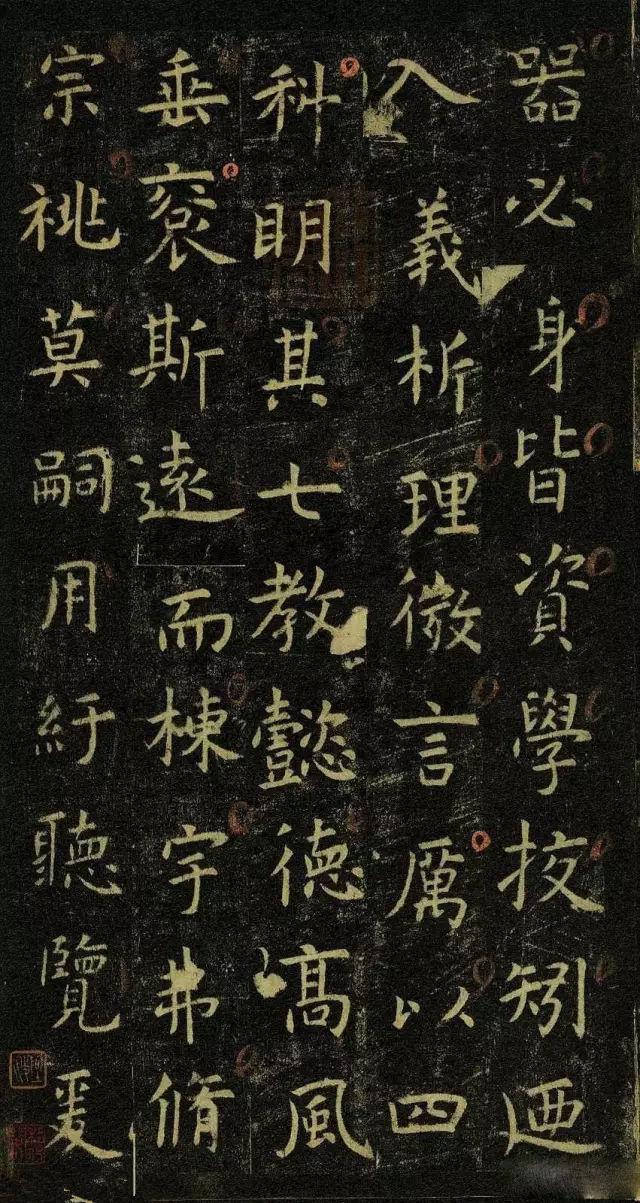 器必身皆資學挍矧迺
入義析理微言厲以四
科明其七教懿德高風
垂裕斯遠而棟宇弗脩
宗祧莫嗣用紆聽覽爰